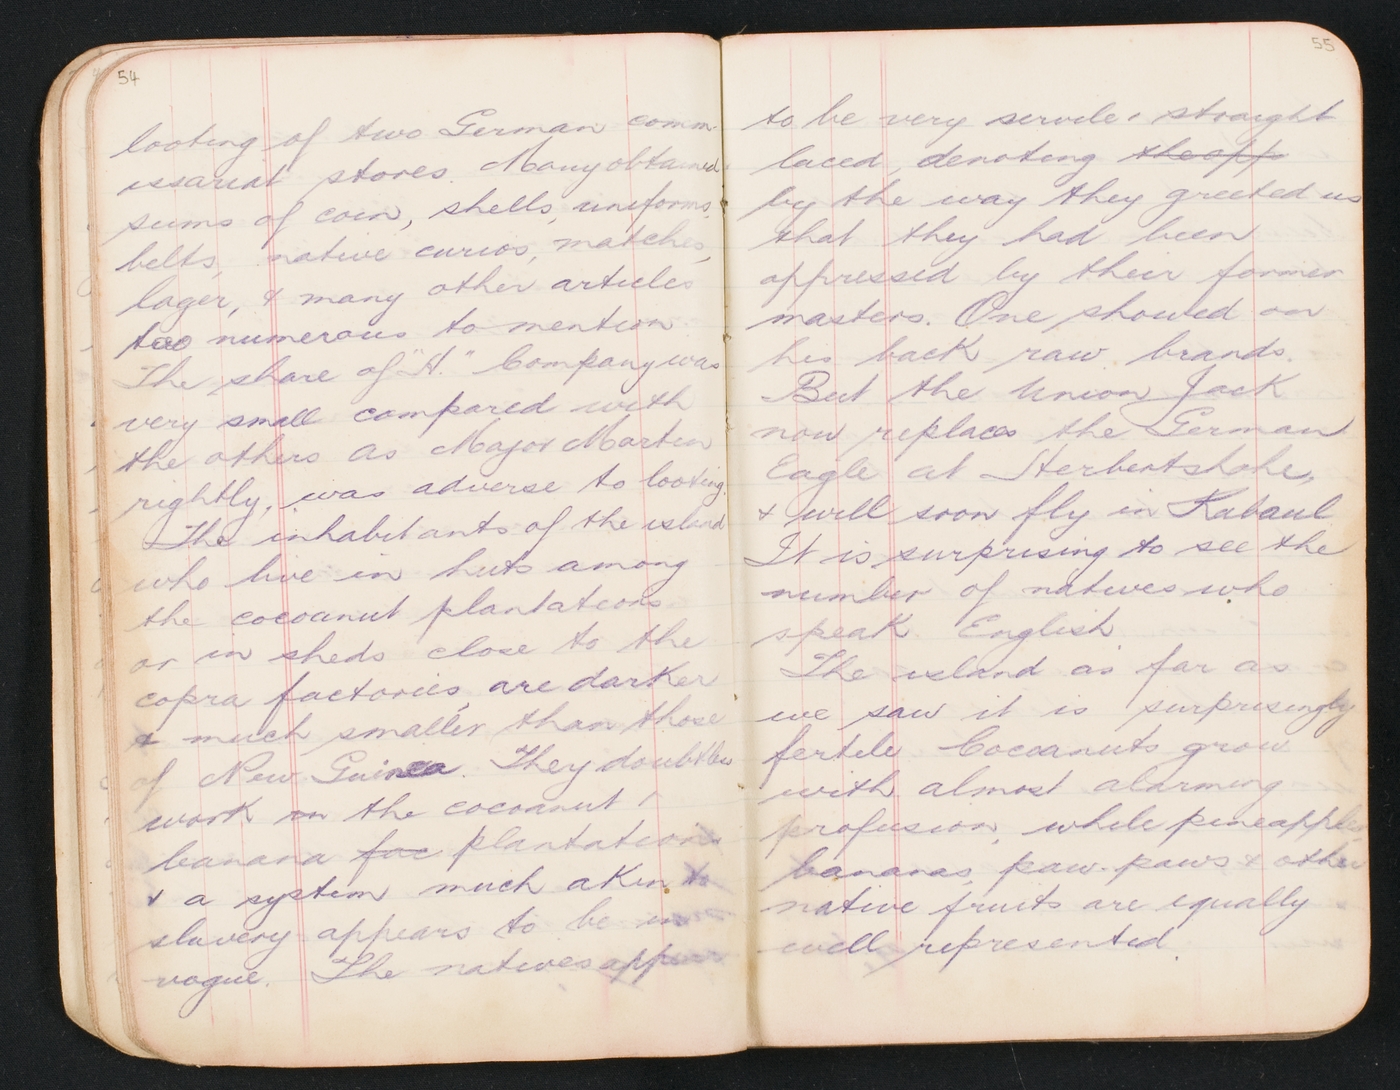 54
looting of two German comm-
issariat stores. Many obtained
sums of coin, shells, uniforms,
belts, native curios, matches,
lager, & many other articles
too numerous to mention.
The share of "H." Company was
very small compared with
the others as Major Martin
rightly, was adverse to looting.
The inhabitants of the island
who live in huts among
the cocoanut plantations
or in sheds close to the
copra factories, are darker
& much smaller than those
of New Guinea. They doubtless
work in the cocoanut &
banana fac plantations
& a system much akin to
slavery appears to be in
vogue. The natives appear
55
to be very servile & straight
laced, denoting the opp
by the way they greeted us
that they had been
oppressed by their former
masters. One showed on
his back raw brands.
But the Union Jack
now replaces the German
Eagle at Herbertshohe,
& will soon fly in Rabaul
It is surprising to see the
number of natives who
speak English
The island as far as
we saw it is surprisingly
fertile. Cocoanuts grow
with almost alarming
profusion, while pineapples,
bananas, paw-paws & other
native fruits are equally
well represented.